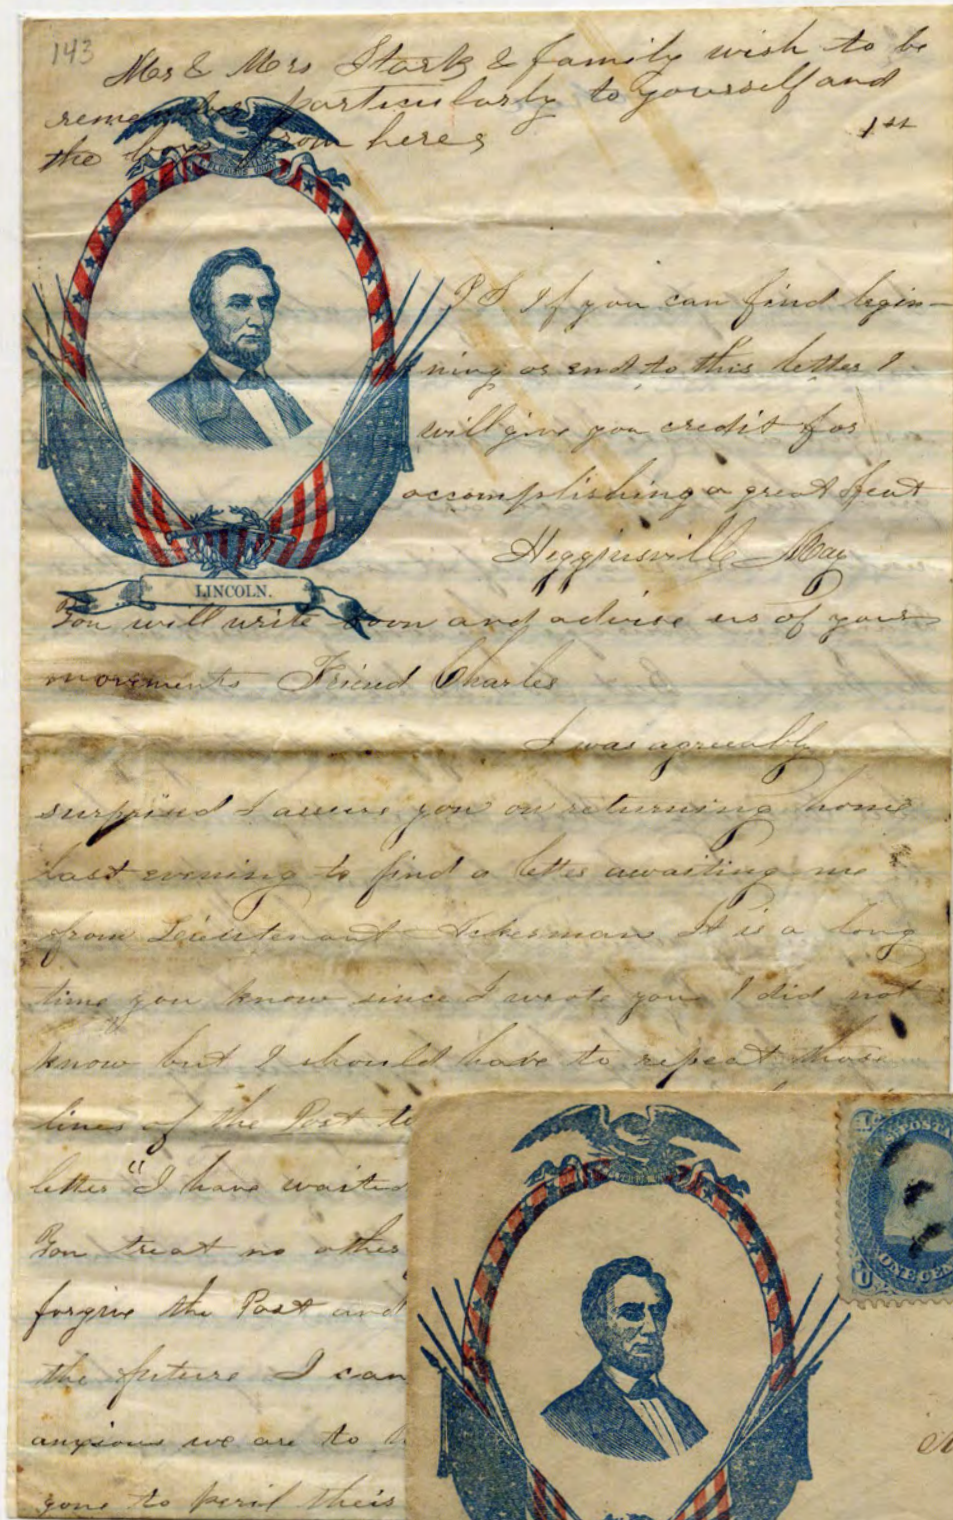 143
Mr & Mrs Stark & family wish to be
remember particularly to yourself and
the boys from here
1st
E PLURIBUS UNUM
P S If you can find begin-
ning or end to this letter I
will give you credit for
accomplishing a great feat
Higginsville May
LINCOLN.
You will write soon and advise us of your
movements Friend Charles
I was agreeably
surprised I assure you on returning home
last evening to find a letter awaiting me
from Lieutenant Ackerman It is a long
time you know since I wrote you I did not
know but I should have to repeat those
lines of the Poet to
letter "I have waited
You treat no other
forgive the Past and
the future I can
anxious we are to h
gone to peril their
U.S. POSTA
ONE CEN
U